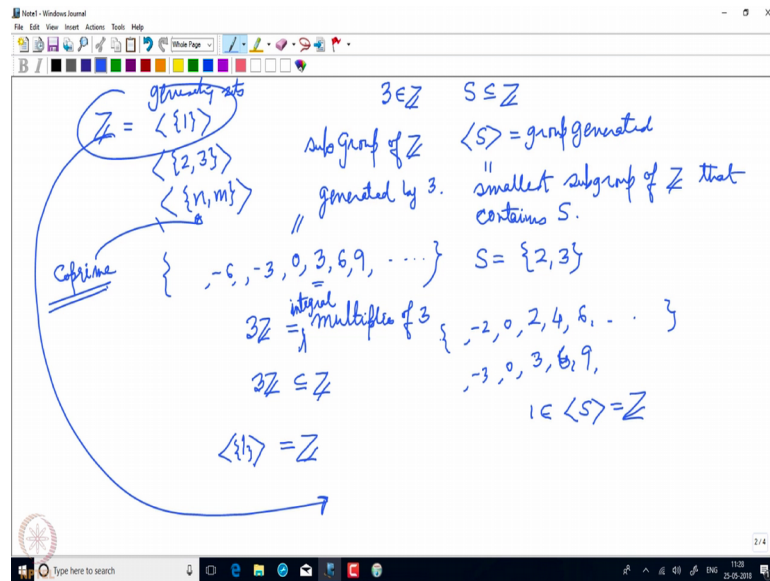 Note1 - Windows Journal
File Edit View Insert Actions Tools Help
Whole Page
B I
generating sets
ℤ = <{1}>
<{2,3}>
<{n,m}>
Coprime
3∈ℤ S⊆ℤ
subgroup of ℤ
generated by 3.
<S> = group generated
"
smallest subgroup of ℤ that
contains S.
//
{ ,-6,-3,0,3,6,9, ....} S= {2,3}
3ℤ = integral multiples of 3
{ ,-2,0,2,4,6,. . . }
,-3,0,3,6,9,
3ℤ ⊆ ℤ
1∈ <S> = ℤ
<{1}> = ℤ
2/4
NPTEL
Type here to search
ENG
11:28
25-05-2018